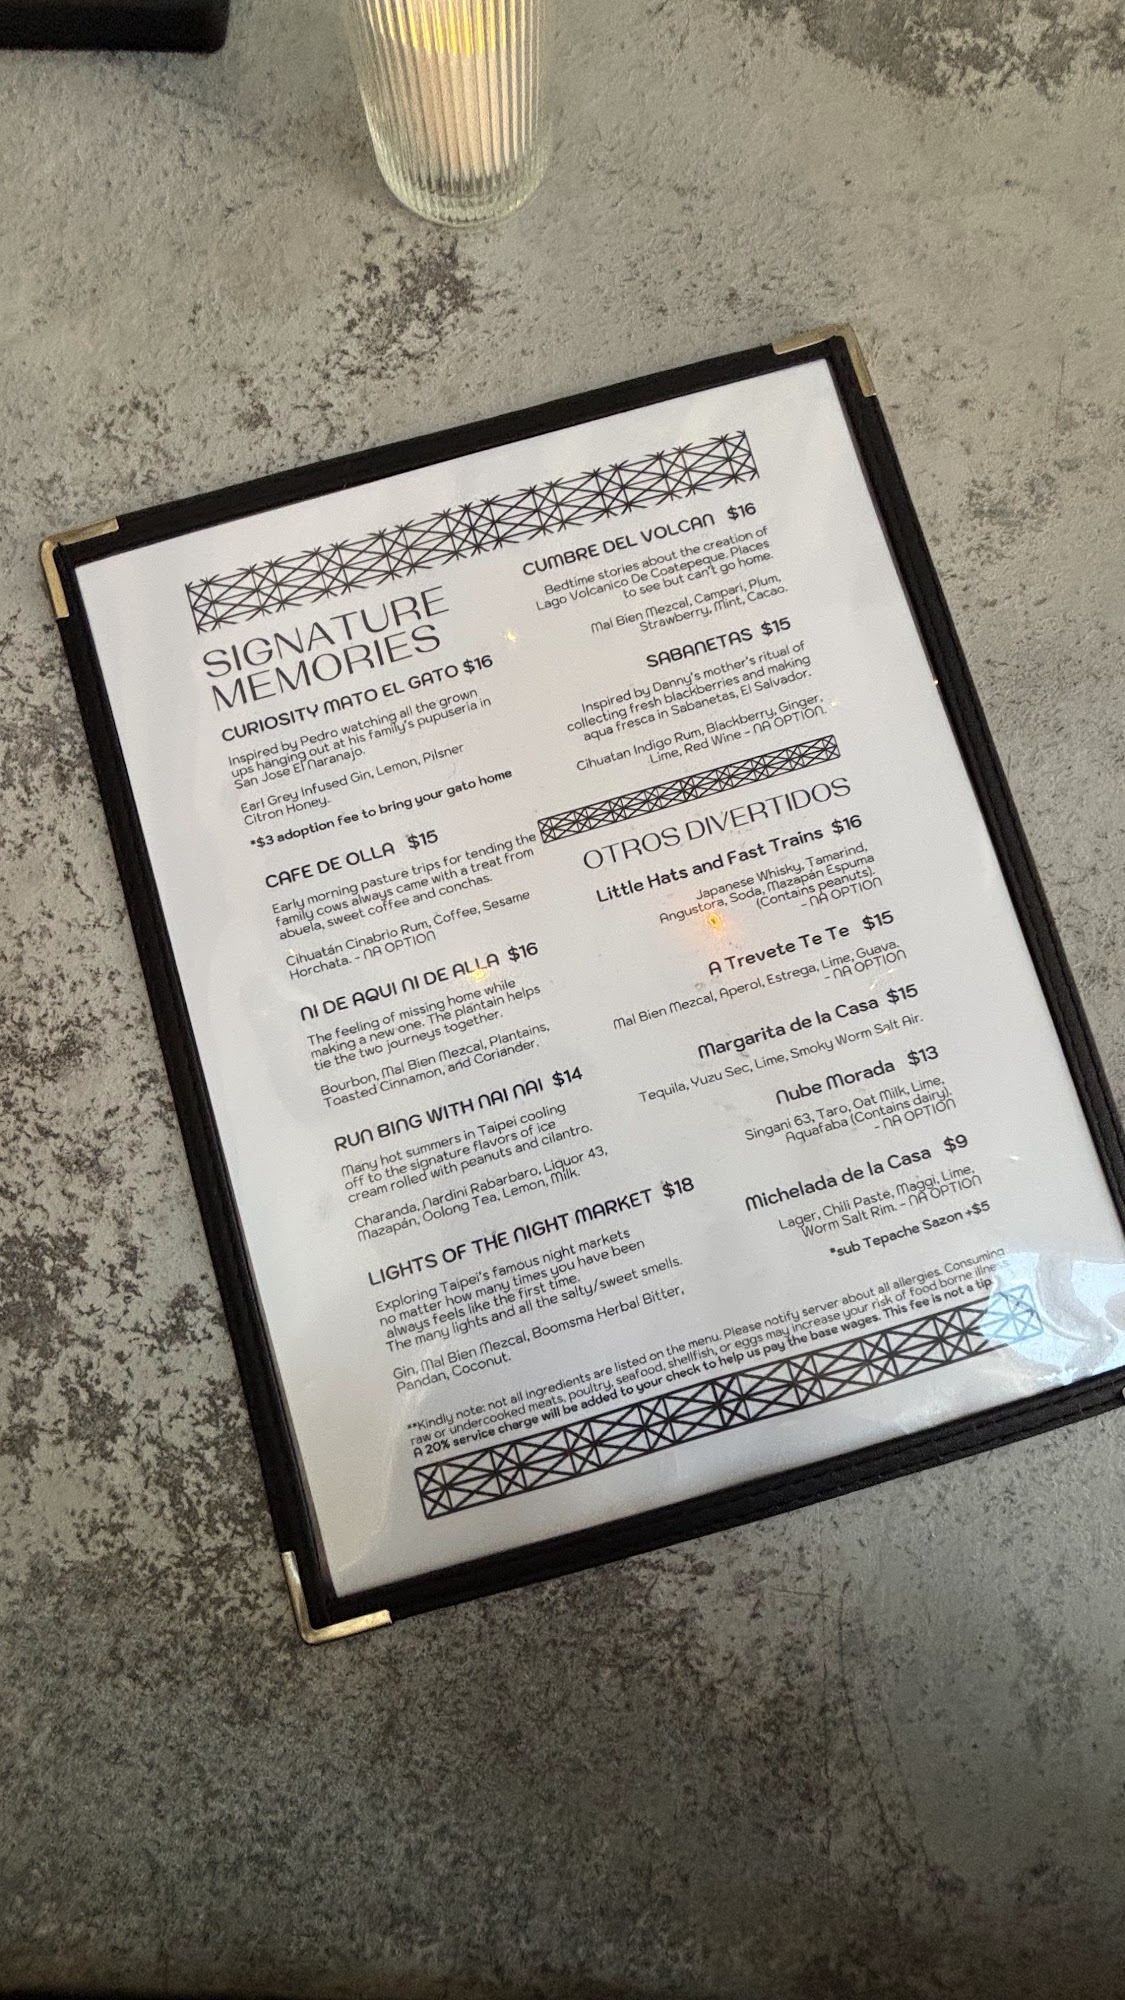 SIGNATURE
MEMORIES
CURIOSITY MATO EL GATO $16
Inspired by Pedro watching all the grown
ups hanging out at his family's pupuseria in
San Jose El Naranajo.
Earl Grey Infused Gin, Lemon, Pilsner
Citron Honey.
*$3 adoption fee to bring your gato home
CAFE DE OLLA $15
Early morning pasture trips for tending the
family cows always came with a treat from
abuela, sweet coffee and conchas.
Cihuatán Cinabrio Rum, Coffee, Sesame
Horchata. - NA OPTION
NI DE AQUI NI DE ALLA $16
The feeling of missing home while
making a new one. The plantain helps
tie the two journeys together.
Bourbon, Mal Bien Mezcal, Plantains,
Toasted Cinnamon, and Coriander.
RUN BING WITH NAI NAI $14
Many hot summers in Taipei cooling
off to the signature flavors of ice
cream rolled with peanuts and cilantro.
Charanda, Nardini Rabarbaro, Liquor 43,
Mazapán, Oolong Tea, Lemon, Milk.
LIGHTS OF THE NIGHT MARKET $18
Exploring Taipei's famous night markets
no matter how many times you have been
always feels like the first time.
The many lights and all the salty/sweet smells.
Gin, Mal Bien Mezcal, Boomsma Herbal Bitter,
Pandan, Coconut.
CUMBRE DEL VOLCAN $16
Bedtime stories about the creation of
Lago Volcanico De Coatepeque. Places
to see but can't go home.
Mal Bien Mezcal, Campari, Plum,
Strawberry, Mint, Cacao.
SABANETAS $15
Inspired by Danny's mother's ritual of
collecting fresh blackberries and making
aqua fresca in Sabanetas, El Salvador.
Cihuatan Indigo Rum, Blackberry, Ginger,
Lime, Red Wine - NA OPTION.
OTROS DIVERTIDOS
Little Hats and Fast Trains $16
Japanese Whisky, Tamarind,
Angustora, Soda, Mazapán Espuma
(Contains peanuts).
- NA OPTION
A Trevete Te Te $15
Mal Bien Mezcal, Aperol, Estrega, Lime, Guava.
- NA OPTION
Margarita de la Casa $15
Tequila, Yuzu Sec, Lime, Smoky Worm Salt Air.
Nube Morada $13
Singani 63, Taro, Oat Milk, Lime,
Aquafaba (Contains dairy).
- NA OPTION
Michelada de la Casa $9
Lager, Chili Paste, Maggi, Lime,
Worm Salt Rim. - NA OPTION
*sub Tepache Sazon +$5
**Kindly note: not all ingredients are listed on the menu. Please notify server about all allergies. Consuming
raw or undercooked meats, poultry, seafood, shellfish, or eggs may increase your risk of food borne illness.
A 20% service charge will be added to your check to help us pay the base wages. This fee is not a tip.